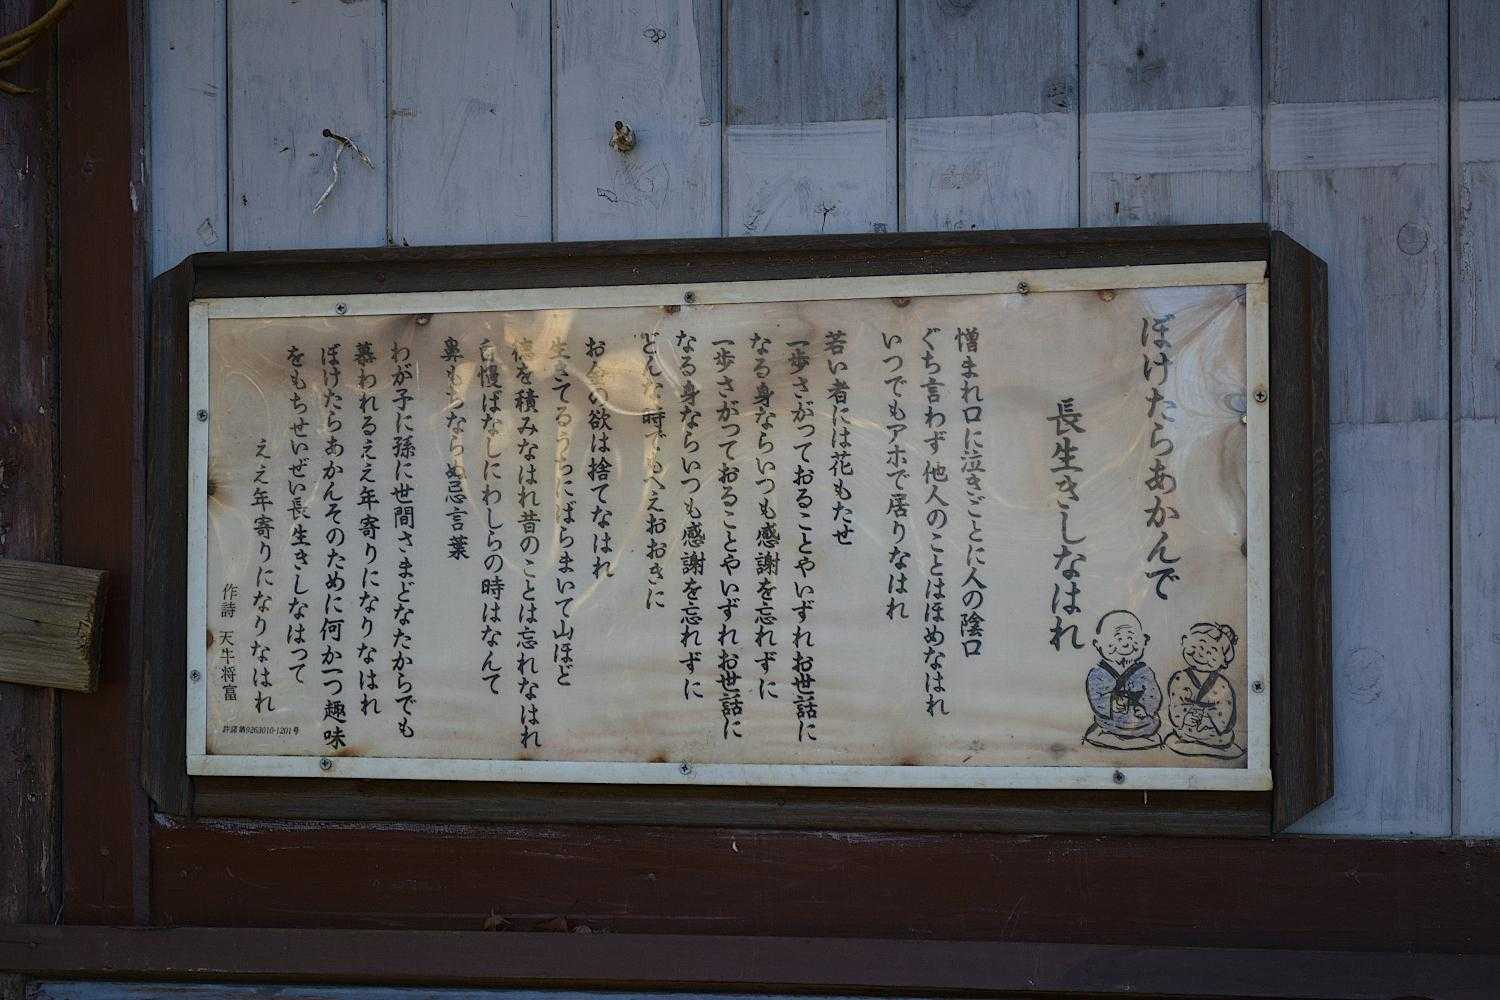 ぼけたらあかんで
長生きしなはれ
憎まれ口に泣きごとに人の陰口
ぐち言わず他人のことはほめなはれ
いつでもアホで居りなはれ
若い者には花もたせ
一歩さがっておることやいずれお世話に
なる身ならいつも感謝を忘れずに
一歩さがっておることやいずれお世話に
なる身ならいつも感謝を忘れずに
どんな時でもへえおおきに
お金の欲は捨てなはれ
生きてるうちにばらまいて山ほど
徳を積みなはれ昔のことは忘れなはれ
自慢ばなしにわしらの時はなんて
鼻もちならぬ忌言葉
わが子に孫に世間さまどなたからでも
慕われるええ年寄りになりなはれ
ぼけたらあかんそのために何か一つ趣味
をもちせいぜい長生きしなはって
ええ年寄りになりなはれ
作詩 天牛将富
許諾第9263010-1201号